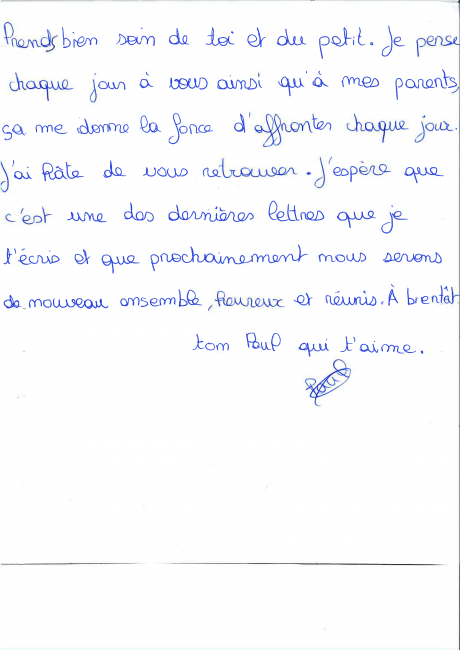 Prends bien soin de toi et du petit. Je pense
chaque jour à vous ainsi qu'à mes parents,
ça me donne la force d'affronter chaque jour.
J'ai hâte de vous retrouver. J'espère que
c'est une des dernières lettres que je
t'écris et que prochainement nous serons
de nouveau ensemble, heureux et réunis. À bientôt
ton Paul qui t'aime.
Paul